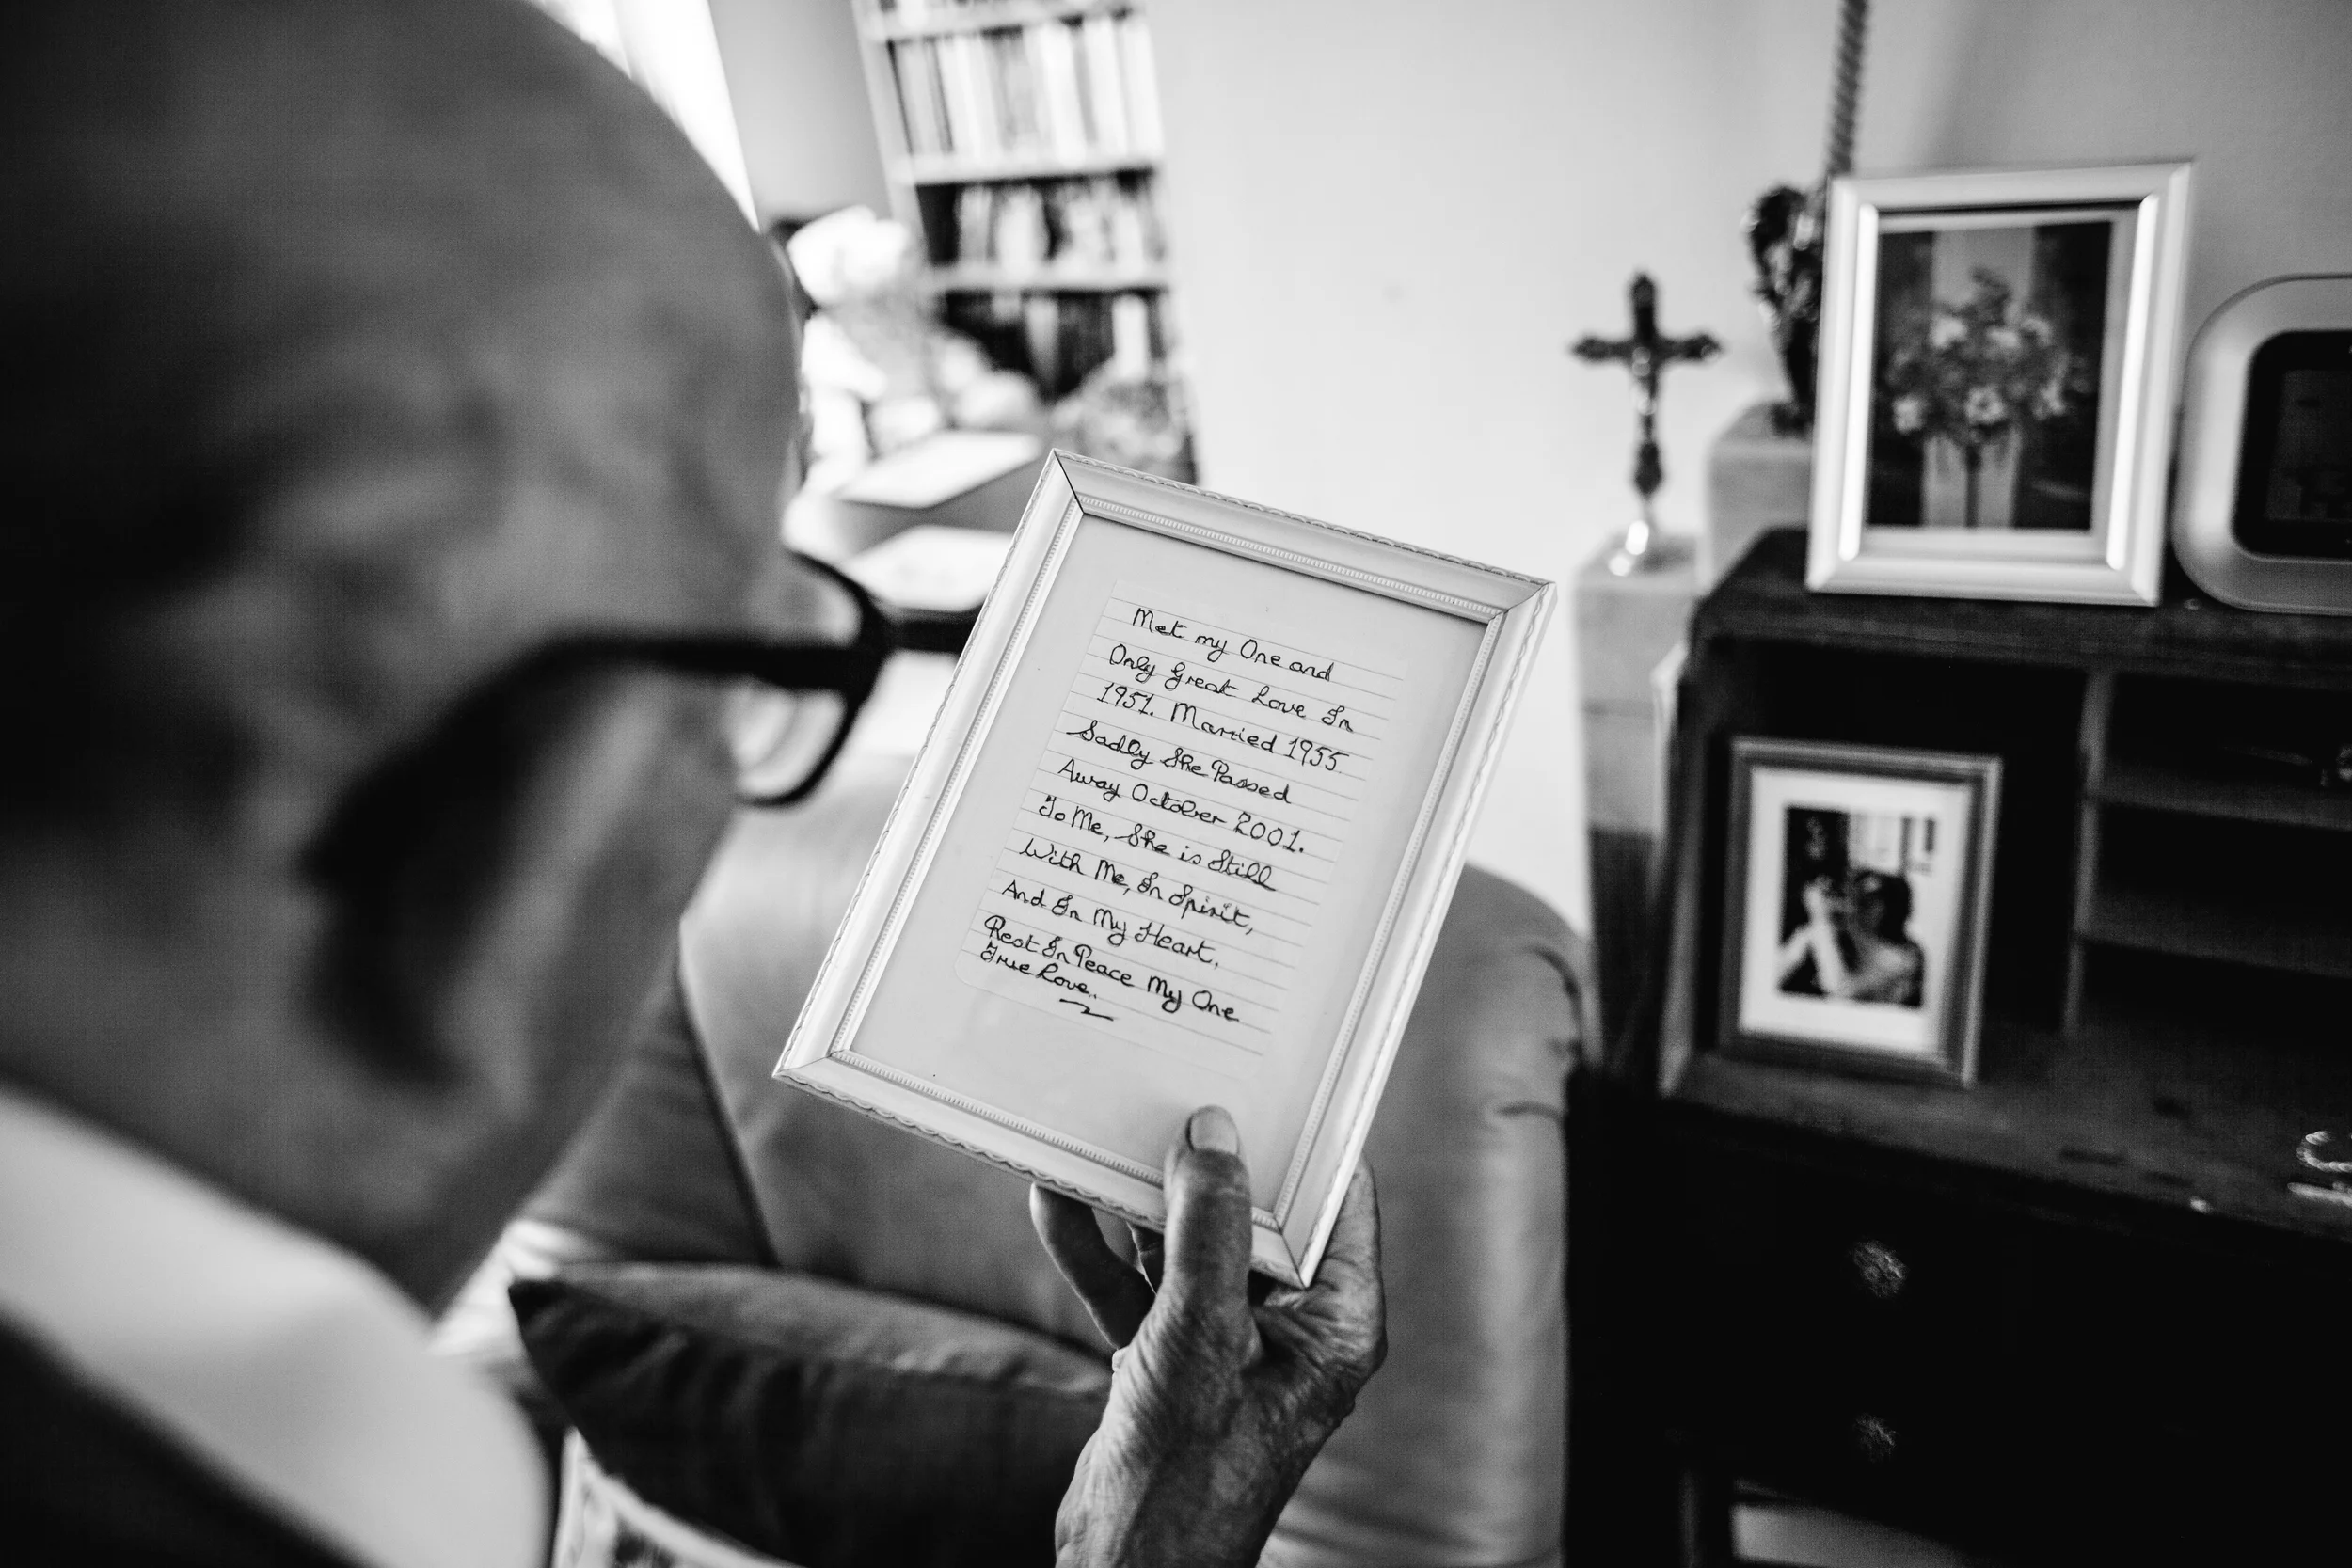 Met my One and
Only Great Love In
1951. Married 1955.
Sadly She Passed
Away October 2001.
To Me, She is Still
With Me, In Spirit,
And In My Heart.
Rest In Peace My One
True Love.